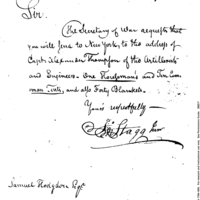 Sir.
The Secretary of War requests that
you will send to New York, to the address of
Capt: Alexander Thompson of the Artillerists
and Engineers. One Horseman's and Ten Com
mon Tents, and also Forty Blankets.
Yours respectfully —
Jno Stagg Junr
Samuel Hodgdon Esqr